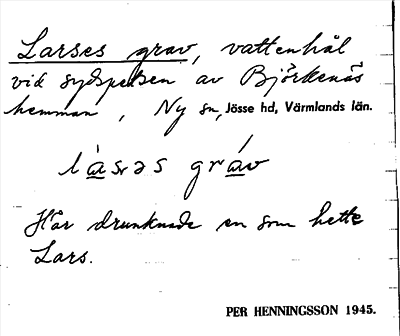 Larses grav, vattenhål
vid sydspetsen av Björkenäs
hemman, Ny sn, Jösse hd, Värmlands län.
làsəs gráv
Här drunknade en som hette
Lars.
PER HENNINGSSON 1945.